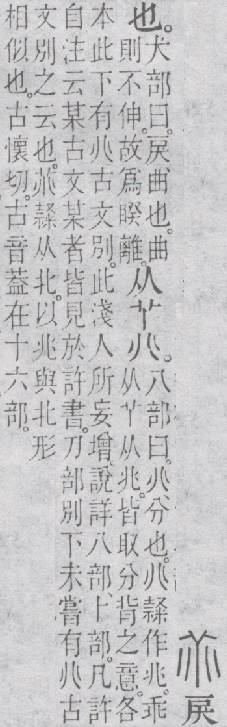 𠁥戾
也。犬部曰。戾、曲也。曲
則不伸。故爲睽離。
从𦫳𠔁。八部曰。𠔁、分也。𠔁隸作兆。乖
从𦫳从兆。皆取分背之意。各
本此下有𠔁古文別。此淺人所妄增。說詳八部、卜部。凡許
自注云某古文某者皆見於許書。刀部別下未嘗有𠔁古
文別之云也。𠁥隸从北。以兆與北形
相似也。古懷切。古音蓋在十六部。